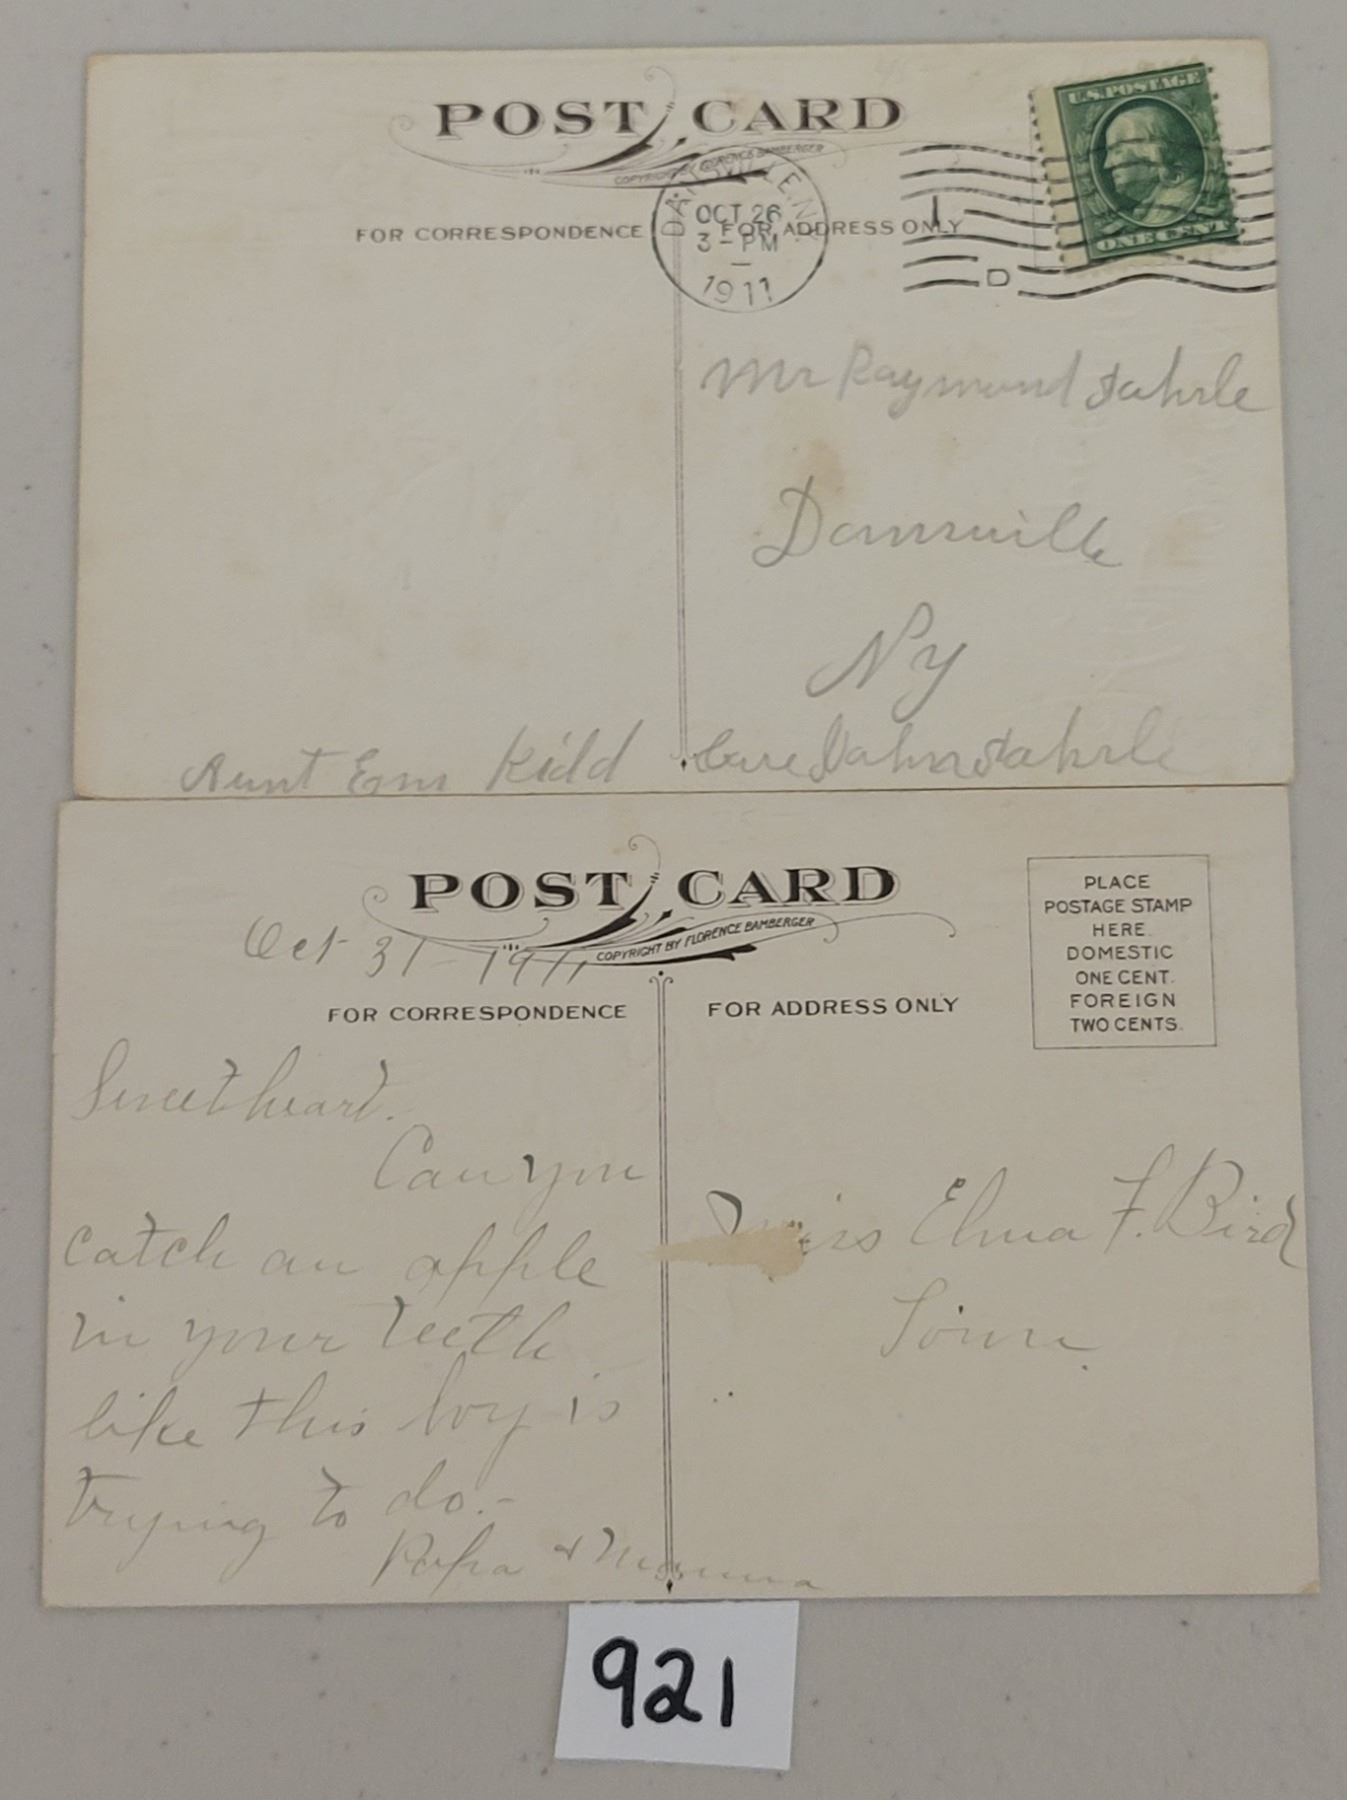 POST CARD
COPYRIGHT BY FLORENCE BAMBERGER
FOR CORRESPONDENCE
FOR ADDRESS ONLY
DANSVILLE, N.
OCT 26
3 - PM
1911
D
U.S. POSTAGE
ONE CENT
Mr Raymond Fahrle
Dansville
Ny
Care John Fahrle
Aunt Em Kidd
POST CARD
COPYRIGHT BY FLORENCE BAMBERGER
Oct 31 - 1911
FOR CORRESPONDENCE
FOR ADDRESS ONLY
PLACE
POSTAGE STAMP
HERE.
DOMESTIC
ONE CENT.
FOREIGN
TWO CENTS.
Sweetheart.
Can you
catch an apple
in your teeth
like this boy is
trying to do.-
Papa & Mamma
Miss Elma F. Bird
921